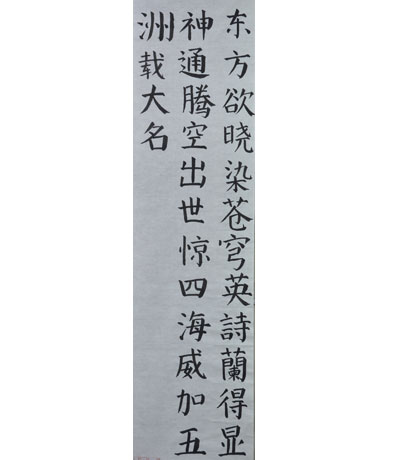 东方欲晓染苍穹英詩蘭得显
神通腾空出世惊四海威加五
洲载大名